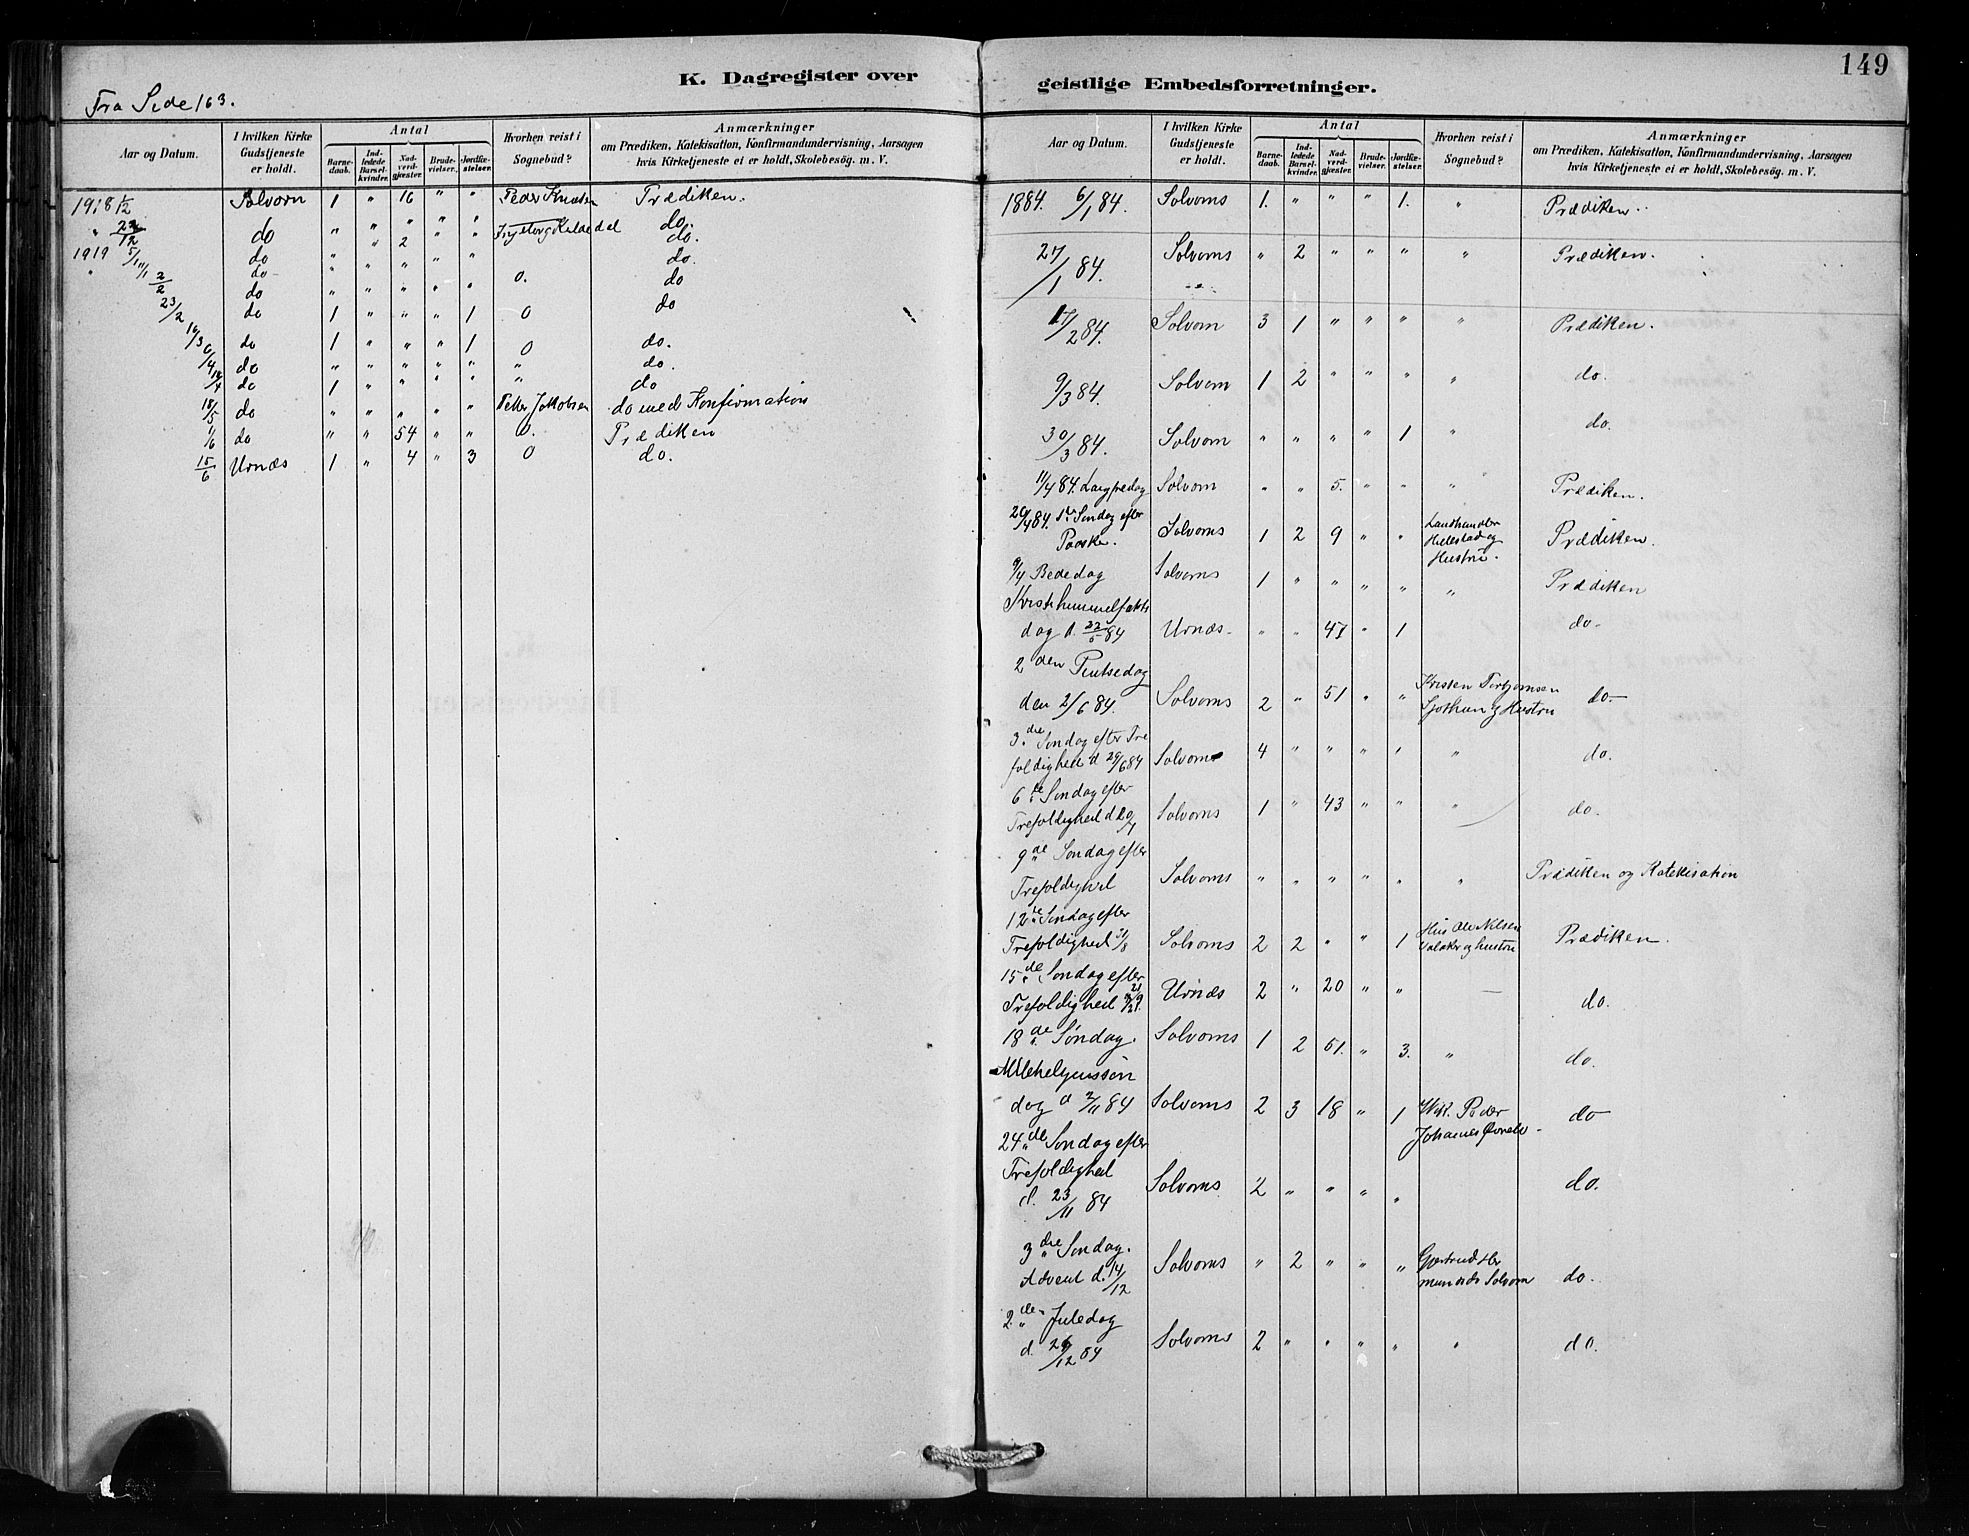 K. Dagregister over
Fra Side 163.
Aar og Datum.
I hvilken Kirke
Gudstjeneste
er holdt.
Antal
Barne-
daab.
Ind-
ledede
Barsel-
kvinder.
Nad-
verd-
gjæster.
Brude-
vielser.
Jordfæ-
stelser.
Hvorhen reist i
Sognebud?
Anmærkninger
om Prædiken, Katekisation, Konfirmandundervisning, Aarsagen
hvis Kirketjeneste ei er holdt, Skolebesøg. m. V.
1918 1/12 Solvorn 1 " 16 " " Peder Knutsen Prædiken.
" 22/12 do " " " " " do.
" " 2 " " do.
1919 5/1 do " " " " " do.
" 11/1 do " " " " " 0. do
2/2 do " " " " "
23/2 do 1 " " " 1 0 do
16/3 do 1 " " " 1 0 do.
6/4 do " " " " " " do.
14/4 do 1 " " " " " do
18/5 do " " " " " Peter Jakobsen do med Konfirmation
1/6 do " " 54 " " 0. Prædiken
15/6 Urnæs 1 " 4 " 3 0 do.
149
geistlige Embedsforretninger.
Aar og Datum.
I hvilken Kirke
Gudstjeneste
er holdt.
Antal
Barne-
daab.
Ind-
ledede
Barsel-
kvinder.
Nad-
verd-
gjæster.
Brude-
vielser.
Jordfæ-
stelser.
Hvorhen reist i
Sognebud?
Anmærkninger
om Prædiken, Katekisation, Konfirmandundervisning, Aarsagen
hvis Kirketjeneste ei er holdt, Skolebesøg. m. V.
1884. 6/1 84. Solvorns 1. " " " 1. " Prædiken.
27/1 84. Solvorns " 2 " " " " Prædiken.
17/2 84. Solvorn 3 1 " " " " Prædiken.
9/3 84. Solvorn 1 2 " " " " do.
30/3 84. Solvorn " " " " 1 " do.
11/4 84. Langfredag Solvorn " " 5. " " " Prædiken.
20/4 84. 1ste Søndag efter
Paaske. Solvorns 1 2 9 " " Landhandler
Hillestad og
Hustru. Prædiken.
9/4 Bededag Solvorns 1 " " " " " Prædiken
Kristihimmelfarts
dag d. 22/5 84 Urnæs. " " 47 " 1 do.
2den Pintsedag
den 2/6 84. Solvorns 2 " 51 " " Kristen Torbjørnsen
og Hustru do.
3die Søndag efter Tre
foldighed d 29/6 84 Solvorns 4 " " " " " do.
6te Søndag efter
Trefoldighed d 20/7 Solvorns 1 " 43 " " " do.
9de Søndag efter
Trefoldighed Solvorns " " " " " " Prædiken og Katekisation
12te Søndag efter
Trefoldighed 31/8 Solvorns 2 2 " " 1 Hus Ole Nilsen
og hustru Prædiken.
15de Søndag efter
Trefoldighed 21/9. Urnæs 2 " 20 " " — do.
18de Søndag. Solvorns 1 2 51. " 3. " do.
dag d 2/11 84 Solvorns 2 3 18 " 1 Peder
Johannes do
24de Søndag efter
Trefoldighed
d. 23/11 84 Solvorns 2 " " " " do.
3die Søndag.
Advent d. 14/12 Solvorns " 2 " " " Gjertrud Her
munds Solvorn do.
2den Juledag
d. 26/12 84 Solvorns 2 " " " " " do.